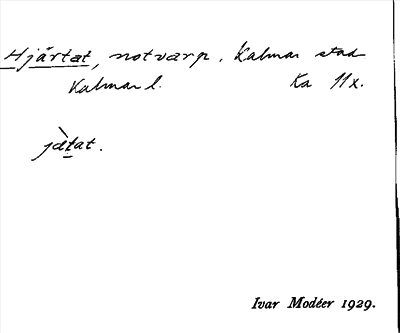 Hjärtat, notvarp, Kalmar stad
Kalmar l. Ka 11x.
jæ̀ṯat.
Ivar Modéer 1929.